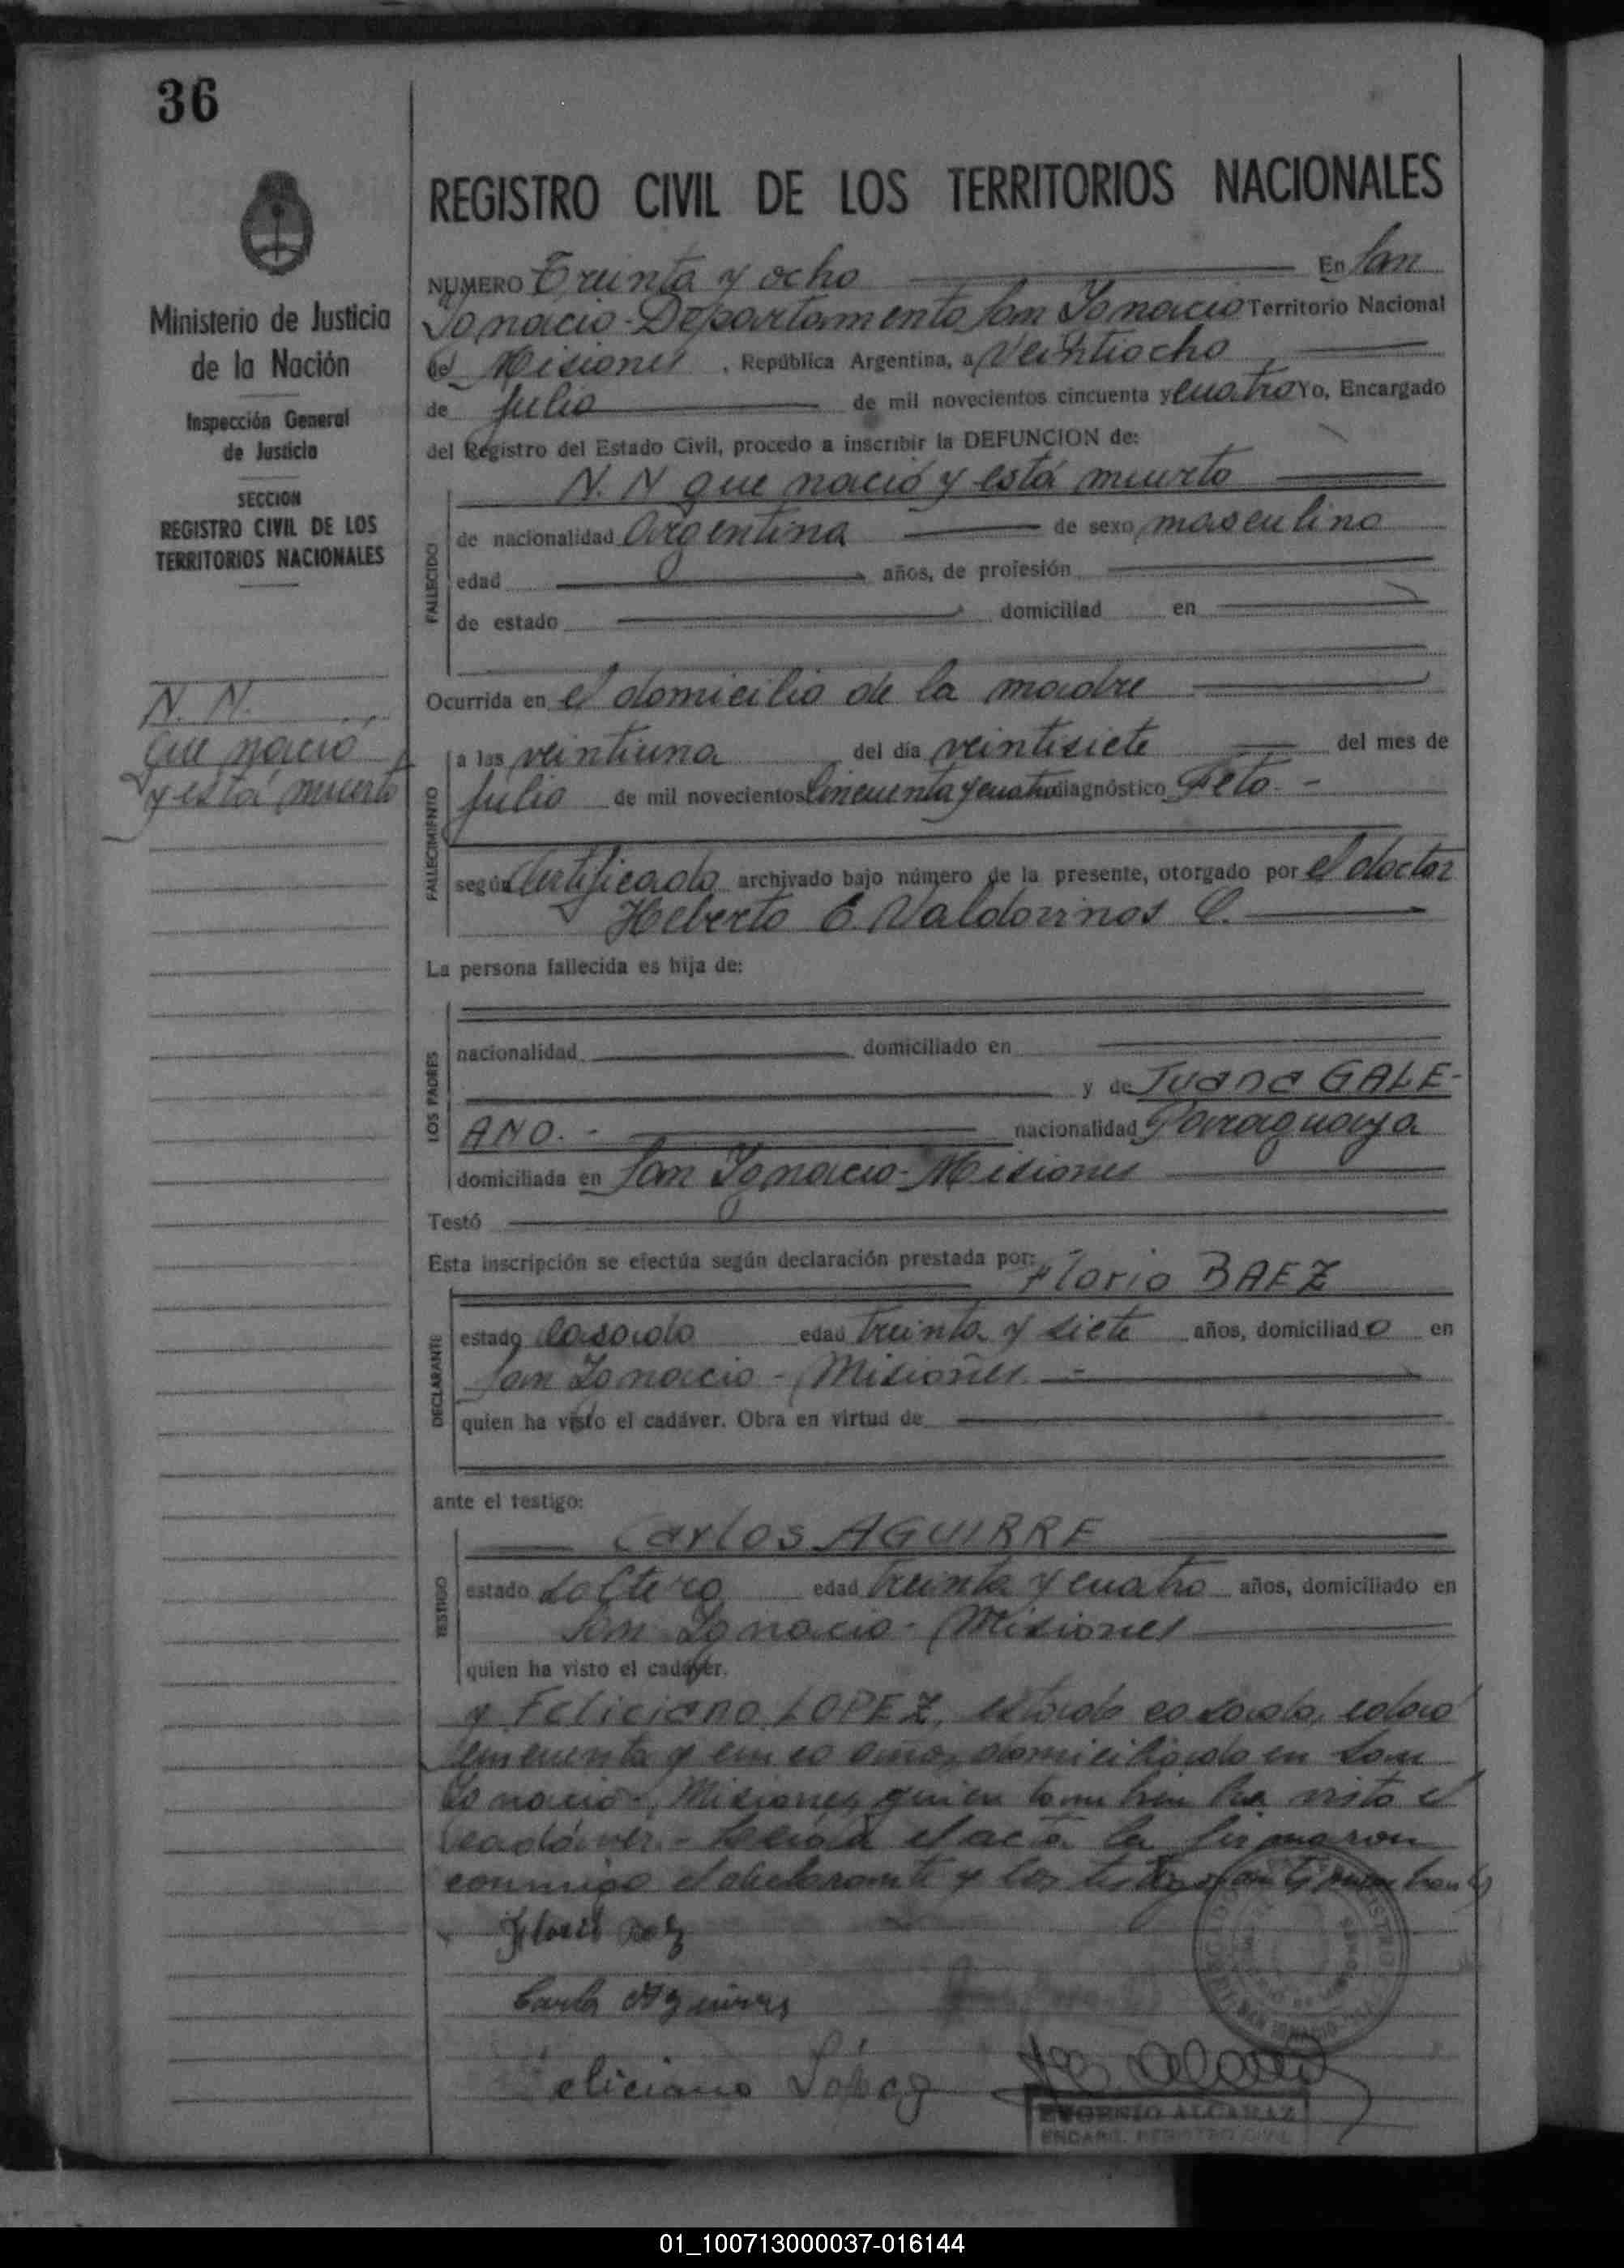 36
Ministerio de Justicia
de la Nación
Inspección General
de Justicia
SECCION
REGISTRO CIVIL DE LOS
TERRITORIOS NACIONALES
N. N.
que nació
y está muerto
REGISTRO CIVIL DE LOS TERRITORIOS NACIONALES
NUMERO Treinta y ocho En San
Ignacio - Departamento San Ignacio Territorio Nacional
de Misiones, República Argentina, a Veintiocho
de Julio de mil novecientos cincuenta y cuatro Yo, Encargado
del Registro del Estado Civil, procedo a inscribir la DEFUNCION de:
N. N que nació y está muerto
FALLECIDO
de nacionalidad Argentina de sexo masculino
edad años, de profesión
de estado domiciliad en
Ocurrida en el domicilio de la madre
FALLECIMIENTO
a las veintiuna del día veintisiete del mes de
Julio de mil novecientos Cincuenta y cuatro diagnóstico Feto. -
según Certificado archivado bajo número de la presente, otorgado por el doctor
Heberto E. Valdovinos C.
La persona fallecida es hija de:
LOS PADRES
nacionalidad domiciliado en
y de Juana GALE-
ANO. - nacionalidad Paraguaya
domiciliada en San Ignacio - Misiones
Testó
Esta inscripción se efectúa según declaración prestada por:
Florio BAEZ
DECLARANTE
estado Casado edad treinta y siete años, domiciliado en
San Ignacio - Misiones. -
quien ha visto el cadáver. Obra en virtud de
ante el testigo:
Carlos AGUIRRE
TESTIGO
estado Soltero edad treinta y cuatro años, domiciliado en
San Ignacio - Misiones
quien ha visto el cadáver.
y Feliciano LOPEZ, estado casado, edad
cincuenta y cinco años, domiciliado en San
Ignacio -, Misiones, quien tambien ha visto el
cadáver. - Leida el acta la firmaron
conmigo el declarante y los testigos
Florio Baez
Carlos Aguirre
Feliciano López
EUGENIO ALCARAZ
ENCARG. REGISTRO CIVIL
01_100713000037-016144